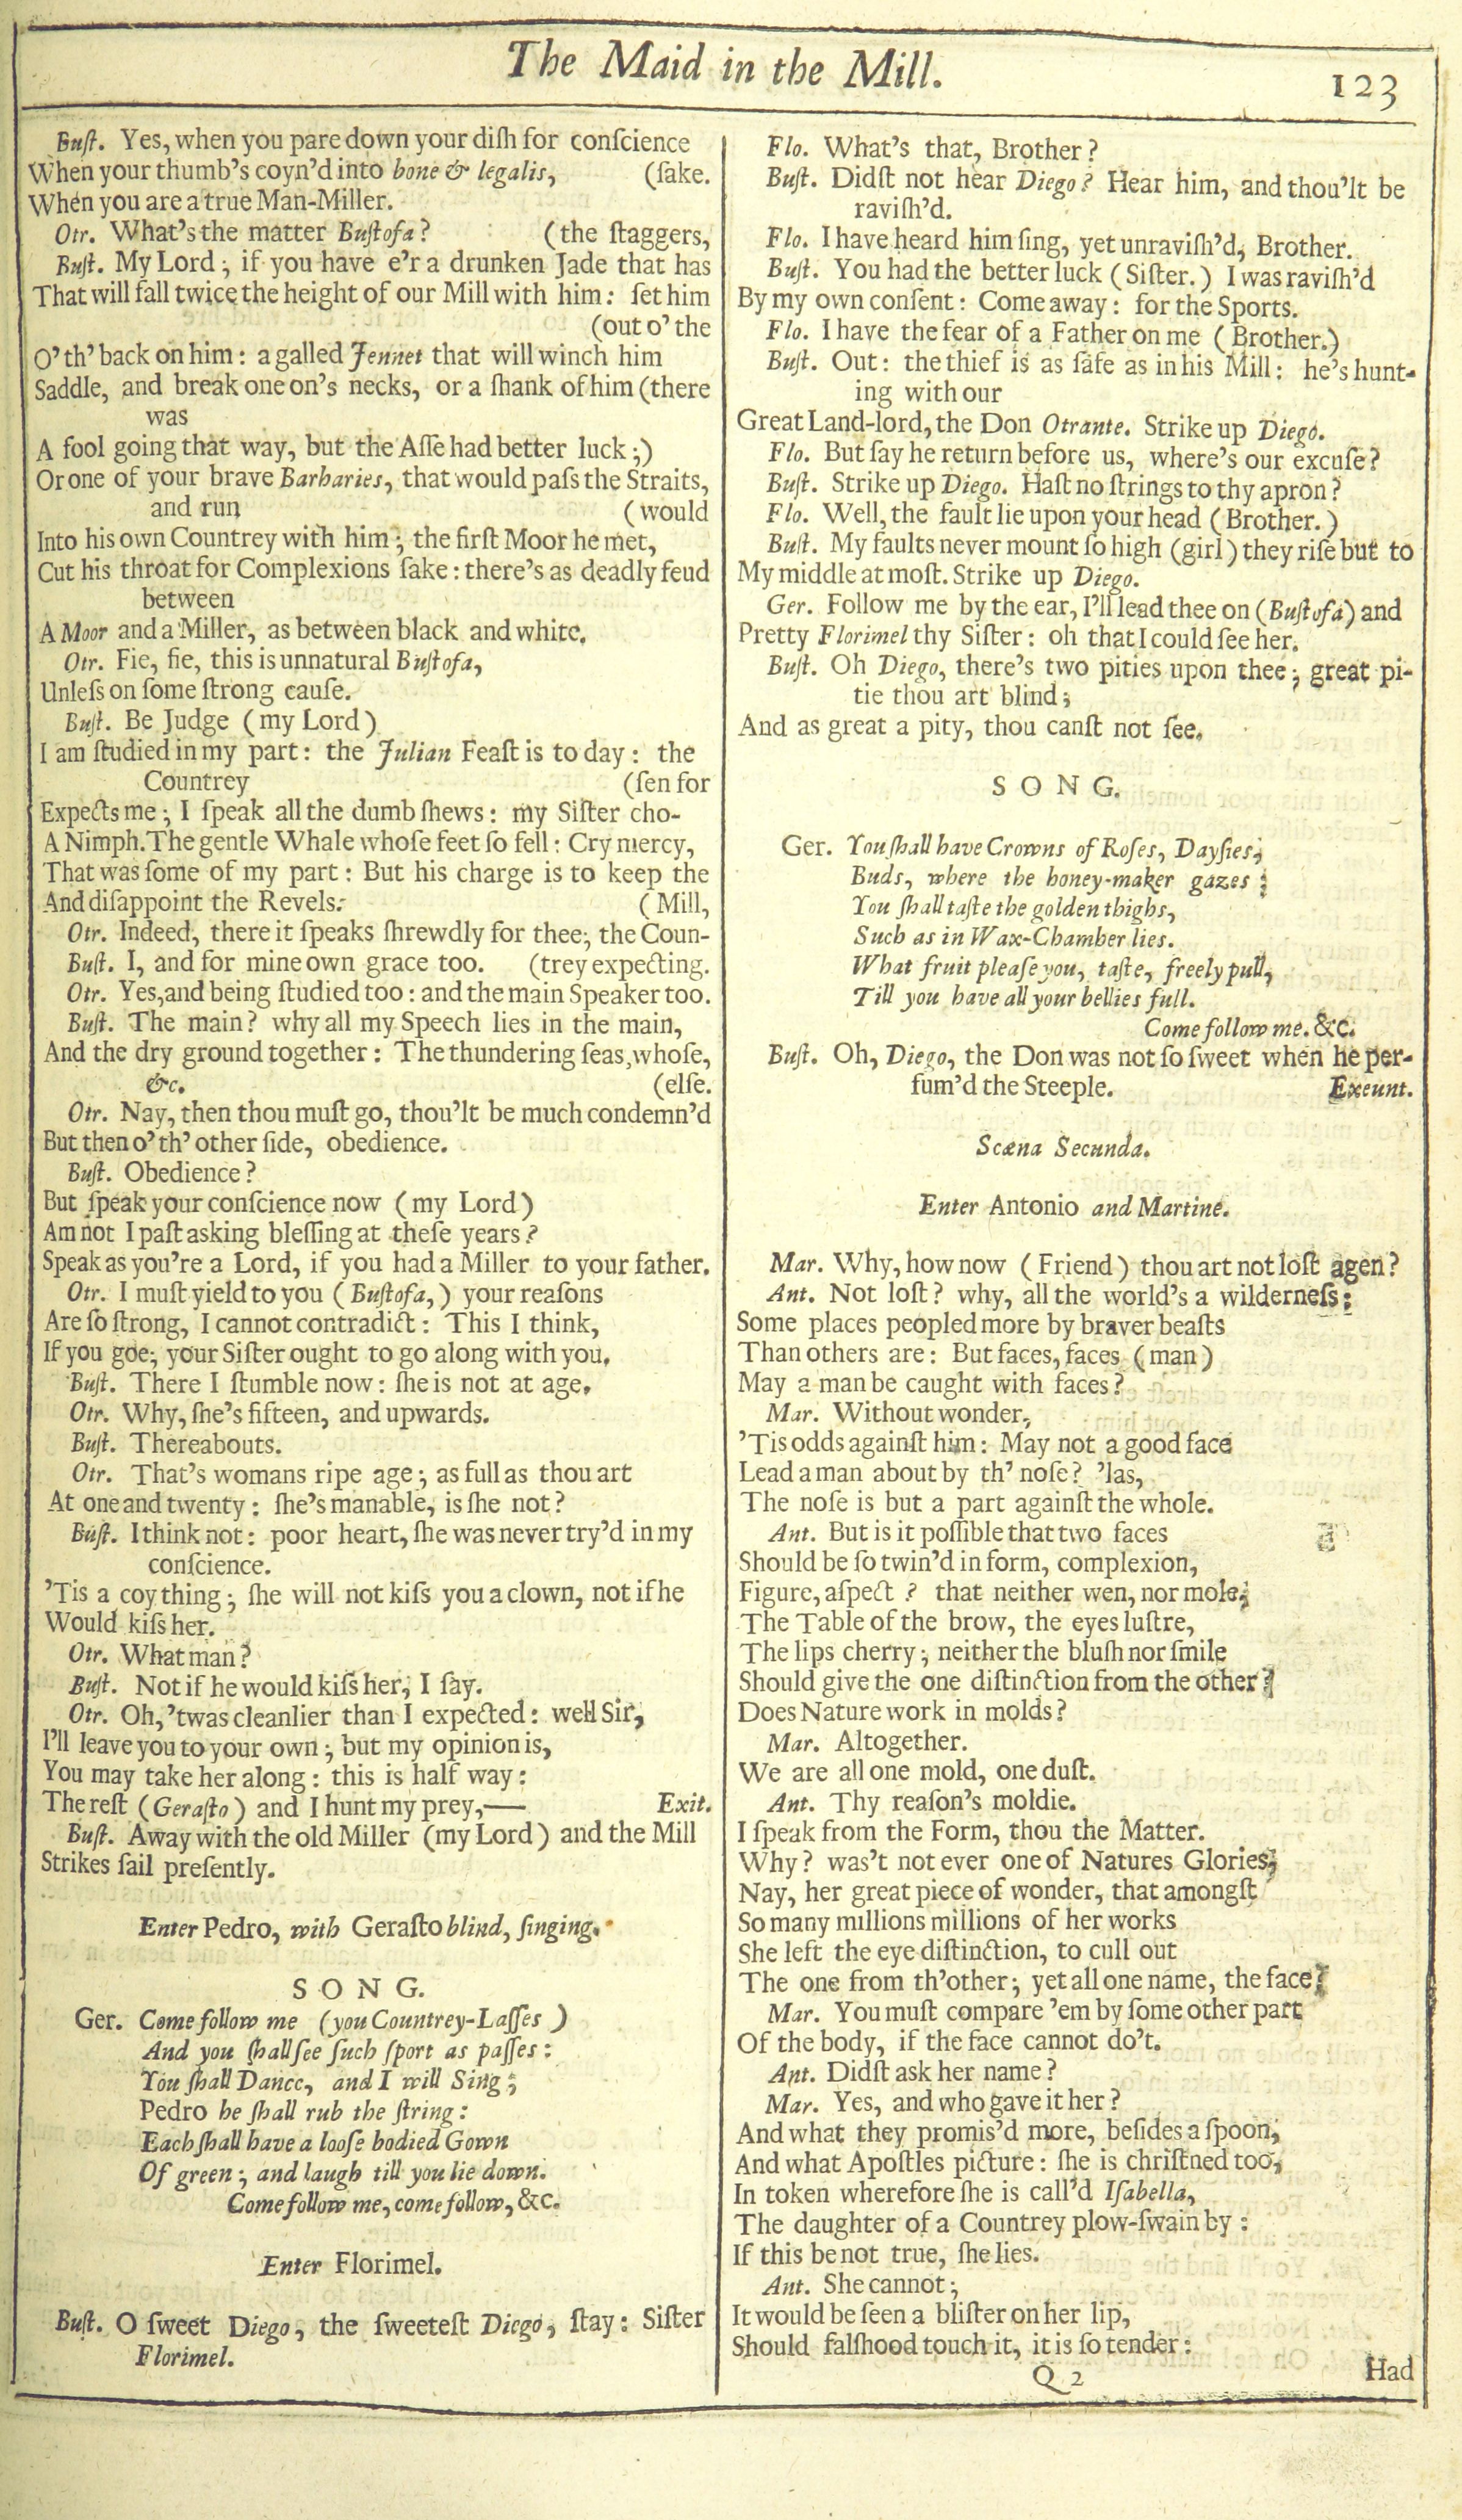 The Maid in the Mill.
123
Buſt. Yes, when you pare down your diſh for conſcience
When your thumb's coyn'd into bone & legalis, (ſake.
When you are a true Man-Miller.
Otr. What's the matter Buſtofa? (the ſtaggers,
Buſt. My Lord; if you have e'r a drunken Jade that has
That will fall twice the height of our Mill with him: ſet him
(out o' the
O'th' back on him: a galled Jennet that will winch him
Saddle, and break one on's necks, or a ſhank of him (there
was
A fool going that way, but the Aſſe had better luck;)
Or one of your brave Barbaries, that would paſs the Straits,
and run (would
Into his own Countrey with him; the firſt Moor he met,
Cut his throat for Complexions ſake: there's as deadly feud
between
A Moor and a Miller, as between black and white.
Otr. Fie, fie, this is unnatural Buſtofa,
Unleſs on ſome ſtrong cauſe.
Buſt. Be Judge (my Lord)
I am ſtudied in my part: the Julian Feaſt is to day: the
Countrey (ſen for
Expects me; I ſpeak all the dumb ſhews: my Siſter cho-
A Nimph. The gentle Whale whoſe feet ſo fell: Cry mercy,
That was ſome of my part: But his charge is to keep the
And diſappoint the Revels. (Mill,
Otr. Indeed, there it ſpeaks ſhrewdly for thee; the Coun-
Buſt. I, and for mine own grace too. (trey expecting.
Otr. Yes, and being ſtudied too: and the main Speaker too.
Buſt. The main? why all my Speech lies in the main,
And the dry ground together: The thundering ſeas, whoſe,
&c. (elſe.
Otr. Nay, then thou muſt go, thou'lt be much condemn'd
But then o'th' other ſide, obedience.
Buſt. Obedience?
But ſpeak your conſcience now (my Lord)
Am not I paſt asking bleſſing at theſe years?
Speak as you're a Lord, if you had a Miller to your father.
Otr. I muſt yield to you (Buſtofa,) your reaſons
Are ſo ſtrong, I cannot contradict: This I think,
If you goe; your Siſter ought to go along with you.
Buſt. There I ſtumble now: ſhe is not at age.
Otr. Why, ſhe's fifteen, and upwards.
Buſt. Thereabouts.
Otr. That's womans ripe age; as full as thou art
At one and twenty: ſhe's manable, is ſhe not?
Buſt. I think not: poor heart, ſhe was never try'd in my
conſcience.
'Tis a coy thing; ſhe will not kiſs you a clown, not if he
Would kiſs her.
Otr. What man?
Buſt. Not if he would kiſs her, I ſay.
Otr. Oh, 'twas cleanlier than I expected: well Sir,
I'll leave you to your own; but my opinion is,
You may take her along: this is half way:
The reſt (Geraſto) and I hunt my prey,— Exit.
Buſt. Away with the old Miller (my Lord) and the Mill
Strikes ſail preſently.
Enter Pedro, with Geraſto blind, ſinging.
SONG.
Ger. Come follow me (you Countrey-Laſſes)
And you ſhall ſee ſuch ſport as paſſes:
You ſhall Dance, and I will Sing;
Pedro he ſhall rub the ſtring:
Each ſhall have a looſe bodied Gown
Of green; and laugh till you lie down.
Come follow me, come follow, &c.
Enter Florimel.
Buſt. O ſweet Diego, the ſweeteſt Diego, ſtay: Siſter
Florimel.
Flo. What's that, Brother?
Buſt. Didſt not hear Diego? Hear him, and thou'lt be
raviſh'd.
Flo. I have heard him ſing, yet unraviſh'd, Brother.
Buſt. You had the better luck (Siſter.) I was raviſh'd
By my own conſent: Come away: for the Sports.
Flo. I have the fear of a Father on me (Brother.)
Buſt. Out: the thief is as ſafe as in his Mill: he's hunt-
ing with our
Great Land-lord, the Don Otrante. Strike up Diego.
Flo. But ſay he return before us, where's our excuſe?
Buſt. Strike up Diego. Haſt no ſtrings to thy apron?
Flo. Well, the fault lie upon your head (Brother.)
Buſt. My faults never mount ſo high (girl) they riſe but to
My middle at moſt. Strike up Diego.
Ger. Follow me by the ear, I'll lead thee on (Buſtofa) and
Pretty Florimel thy Siſter: oh that I could ſee her.
Buſt. Oh Diego, there's two pities upon thee; great pi-
tie thou art blind;
And as great a pity, thou canſt not ſee.
SONG.
Ger. You ſhall have Crowns of Roſes, Dayſies,
Buds, where the honey-maker gazes;
You ſhall taſte the golden thighs,
Such as in Wax-Chamber lies.
What fruit pleaſe you, taſte, freely pull,
Till you have all your bellies full.
Come follow me. &c.
Buſt. Oh, Diego, the Don was not ſo ſweet when he per-
fum'd the Steeple. Exeunt.
Scæna Secunda.
Enter Antonio and Martine.
Mar. Why, how now (Friend) thou art not loſt agen?
Ant. Not loſt? why, all the world's a wilderneſs:
Some places peopled more by braver beaſts
Than others are: But faces, faces (man)
May a man be caught with faces?
Mar. Without wonder,
'Tis odds againſt him: May not a good face
Lead a man about by th' noſe? 'las,
The noſe is but a part againſt the whole.
Ant. But is it poſſible that two faces
Should be ſo twin'd in form, complexion,
Figure, aſpect? that neither wen, nor mole,
The Table of the brow, the eyes luſtre,
The lips cherry; neither the bluſh nor ſmile
Should give the one diſtinction from the other?
Does Nature work in molds?
Mar. Altogether.
We are all one mold, one duſt.
Ant. Thy reaſon's moldie.
I ſpeak from the Form, thou the Matter.
Why? was't not ever one of Natures Glories,
Nay, her great piece of wonder, that amongſt
So many millions millions of her works
She left the eye diſtinction, to cull out
The one from th'other; yet all one name, the face?
Mar. You muſt compare 'em by ſome other part
Of the body, if the face cannot do't.
Ant. Didſt ask her name?
Mar. Yes, and who gave it her?
And what they promis'd more, beſides a ſpoon,
And what Apoſtles picture: ſhe is chriſtned too,
In token wherefore ſhe is call'd Iſabella,
The daughter of a Countrey plow-ſwain by:
If this be not true, ſhe lies.
Ant. She cannot;
It would be ſeen a bliſter on her lip,
Should falſhood touch it, it is ſo tender:
Q 2
Had